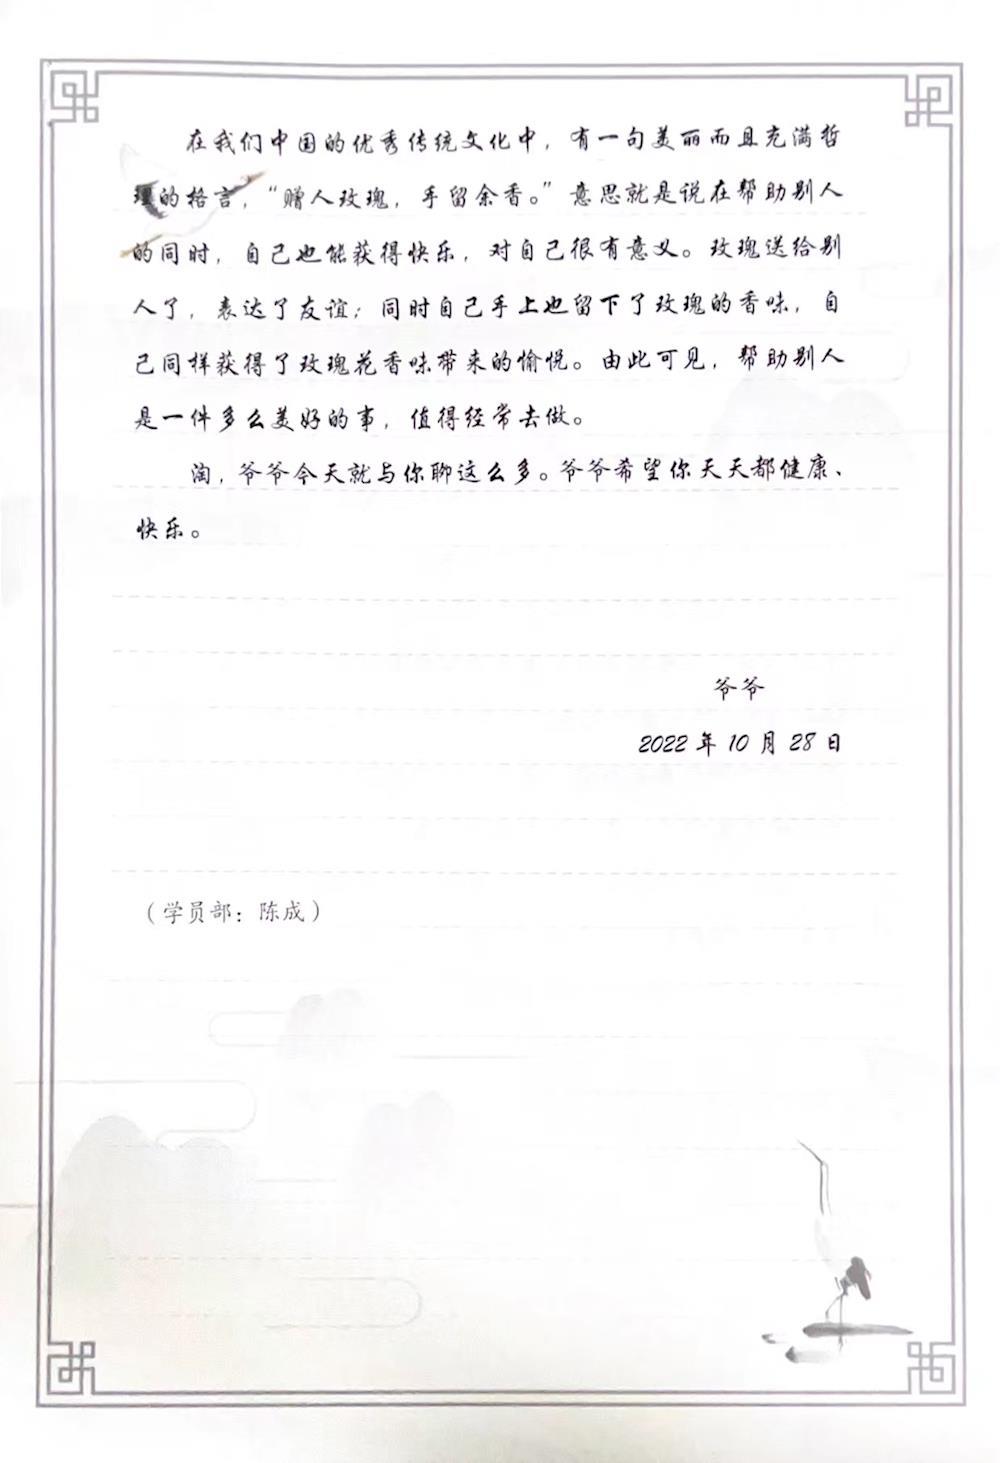 在我们中国的优秀传统文化中，有一句美丽而且充满哲
理的格言，“赠人玫瑰，手留余香。”意思就是说在帮助别人
的同时，自己也能获得快乐，对自己很有意义。玫瑰送给别
人了，表达了友谊；同时自己手上也留下了玫瑰的香味，自
己同样获得了玫瑰花香味带来的愉悦。由此可见，帮助别人
是一件多么美好的事，值得经常去做。
淘，爷爷今天就与你聊这么多。爷爷希望你天天都健康、
快乐。
爷爷
2022 年 10 月 28 日
（学员部：陈成）